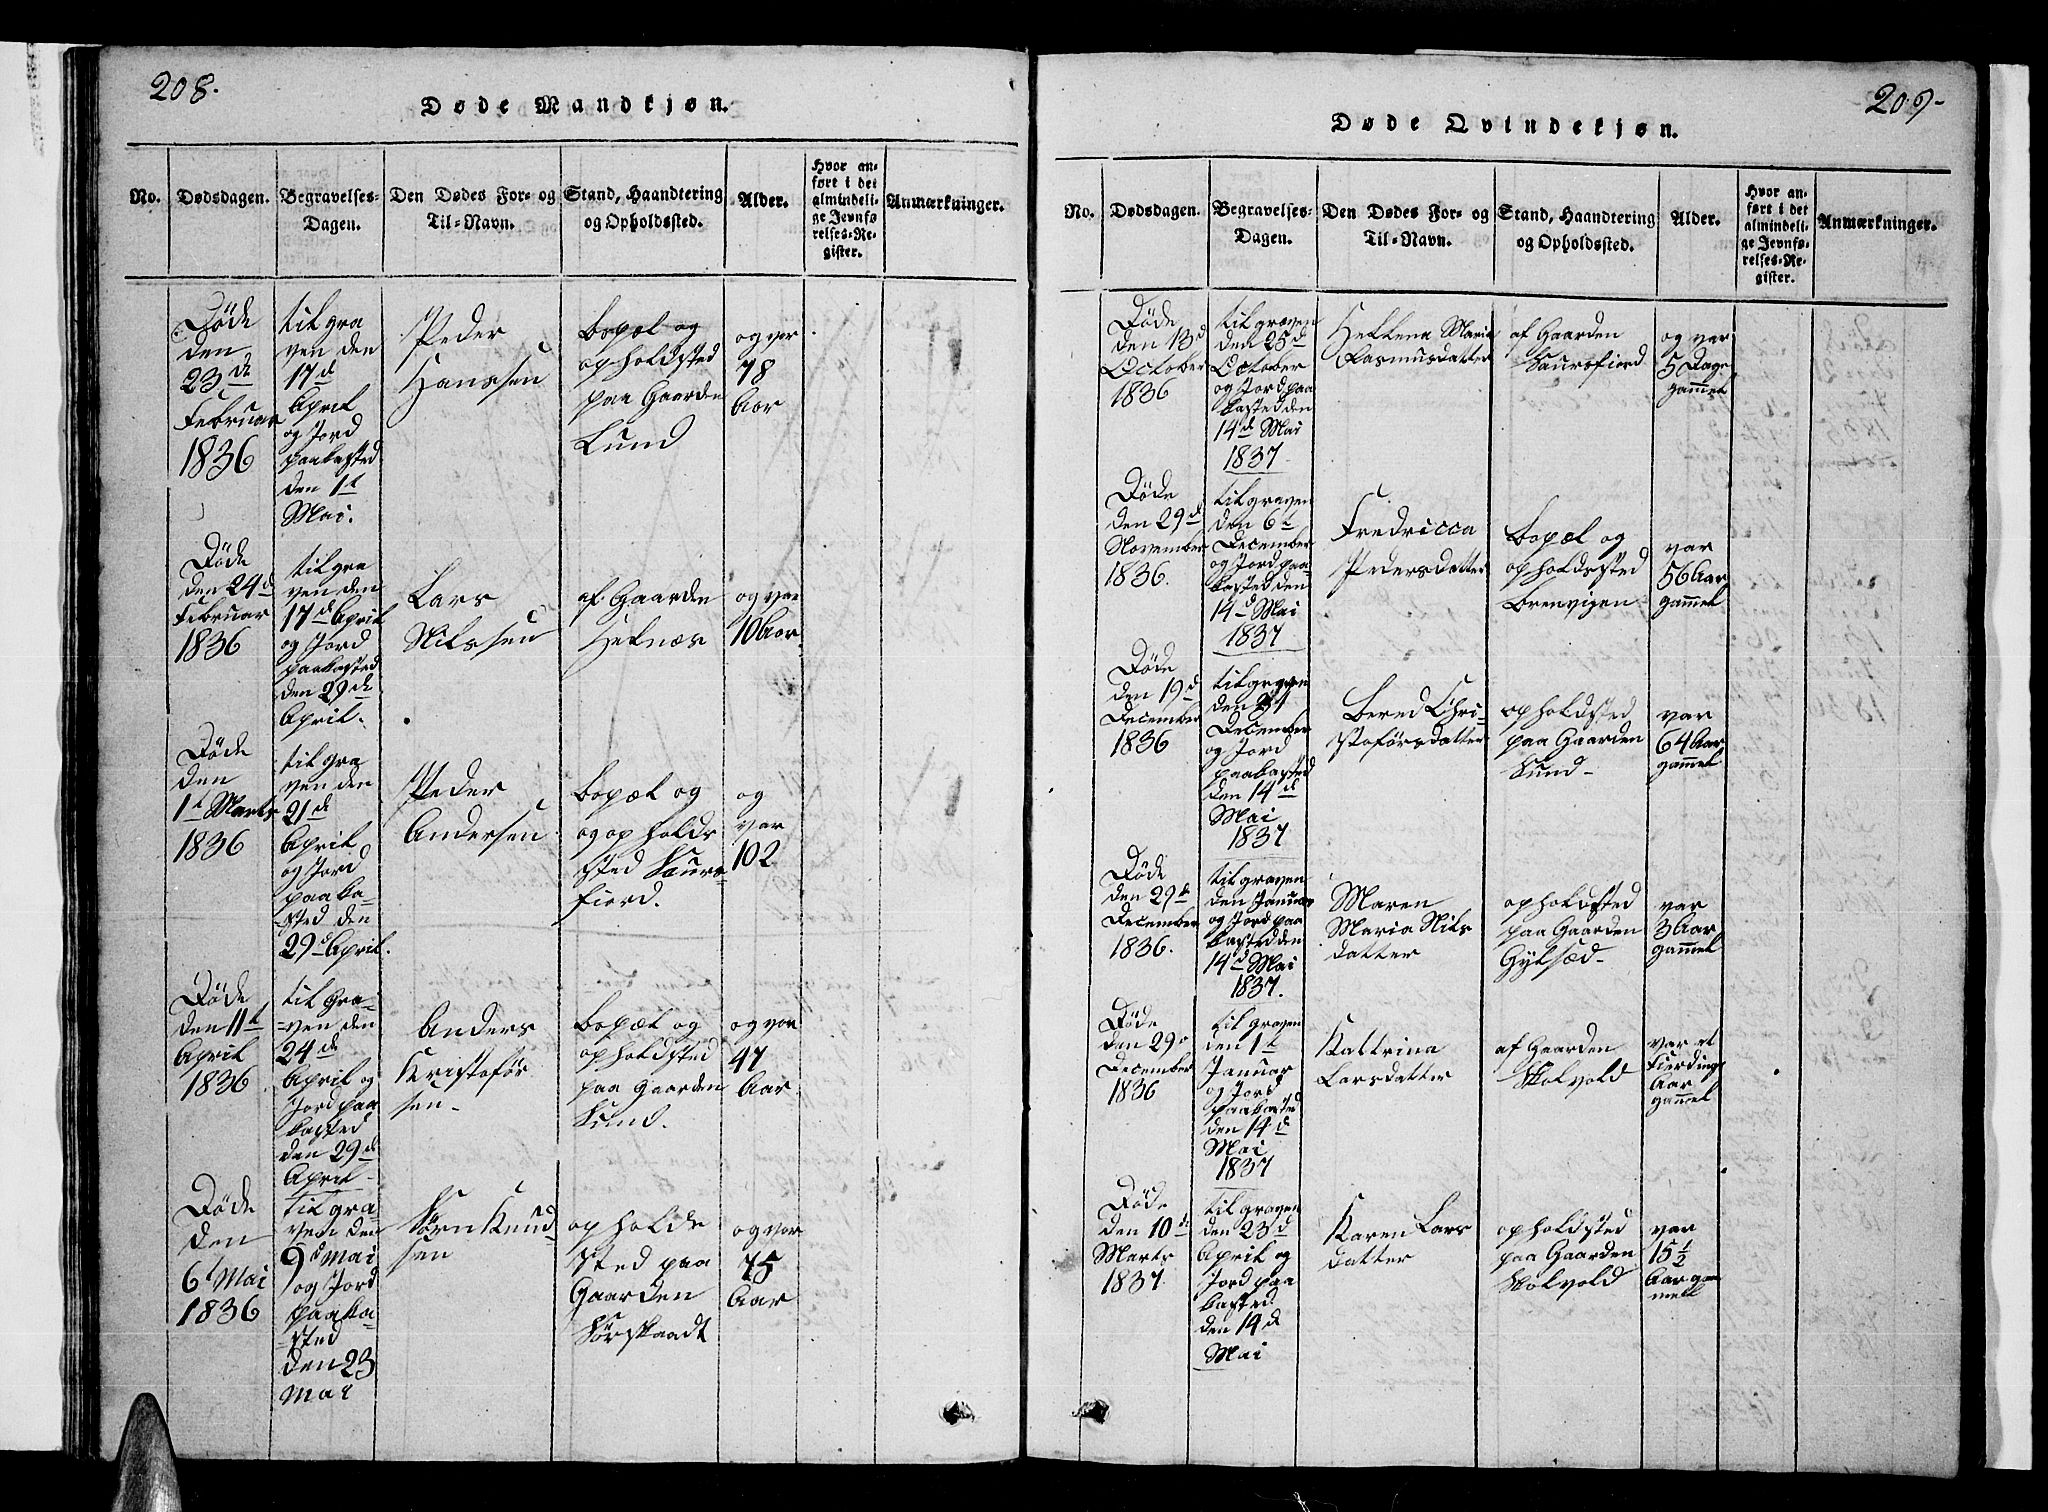 208.
Døde Mandkjøn.
No.
Dødsdagen.
Begravelses-
Dagen.
Den Dødes For- og
Til-Navn.
Stand, Haandtering
og Opholdssted.
Alder.
Hvor an-
ført i det
almindeli-
ge Jevnfø
relses-Re-
gister.
Anmærkninger.
Døde
den
23de
Februar
1836
til gra
ven den
17d
April
og Jord
paakasted
den 1t
Mai.
Peder
Hanssen
bopæl og
opholdsted
paa Gaarden
Lund
og var
78
Aar
Døde
den 24d
Februar
1836
til gra
ven den
17d April
og Jord
paakasted
den 29de
April.
Lars
Nilssen
af Gaarden
Helnæs
og var
10 Aar.
Døde
den
1t Marts
1836
til gra
ven den
21de
April
og Jord
paa ka-
sted den
29d April.
Peder
Andersen
bopæl og
og opholds
sted Saurs-
fiord.
og
var
102
Døde
den 11t
April
1836
til Gra-
ven den
24de
April og
Jord paa
kasted
den 29d
April
Anders
Kristofør
sen
bopæl og
opholdsted
paa Gaarden
Sund.
og var
47
Aar
Døde
den
6t Mai
1836
til gra-
ven den
9d Mai
og Jord
paaka-
sted
den 23
Mai
Sørn Knud-
sen
opholds
sted paa
Gaarden
Sørskaadt
og var
75
Aar
209-
Døde Qvindekjøn.
No.
Dødsdagen.
Begravelses-
Dagen.
Den Dødes For- og
Til-Navn.
Stand, Haandtering
og Opholdssted.
Alder.
Hvor an-
ført i det
almindeli-
ge Jevnfø-
relses-Re-
gister.
Anmærkninger.
Døde
den 13d
October
1836
til graven
den 23d
October
og Jord paa
kasted den
14d Mai
1837
Hellena Maria
Rasmusdatter
af Gaarden
Saursfiord
og var
5 Dage
gammel
Døde
den 29d
November
1836.
til graven
den 6t
December
og Jord paa-
kasted den
14d Mai
1837
Fredricca
Pedersdatter
bopæl og
opholdssted
Brenvigen
var
56 Aar
gammel
Døde
den 19d
December
1836
til graven
den
December
og Jord
paakasted
den 14d
Mai
1837
Bered Chri-
stoførsdatter
opholdsted
paa Gaarden
Sund
var
64 Aar
gammel
Døde
den 29de
December
1836.
til graven
den Januar
og Jord paa
kasted den
14d Mai
1837.
Maren
Maria Nils
datter
opholdsted
paa Gaarden
Gylsæd
var
3 Aar
gammel
Døde
den 29
December
1836
til graven
den 1t
Januar
og Jord
paakasted
den 14d
Mai
1837
Kattrina
Larsdatter
af Gaarden
Stolvold
var et
Fierding
Aar
gammel
Døde
den 10de
Marts
1837.
til graven
den 23d
April og
Jord paa
kasted
den 14d
Mai
Karen Lars
datter
opholdsted
paa Gaarden
Stolvold
var
15 1/2
Aar gam
mell